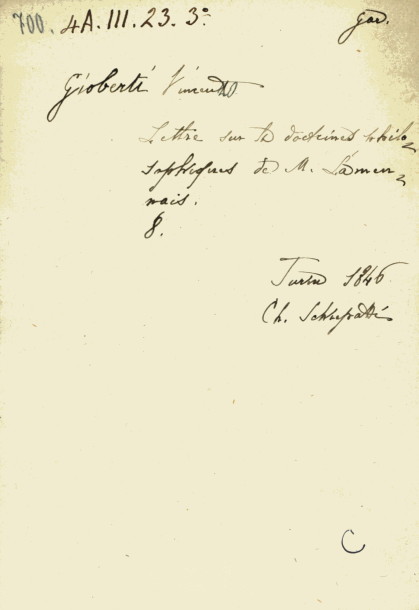 700. 4A.III.23.3º
Gioberti Vincenzo
Lettre sur les doctrines philo
sophiques de M. Lamen
nais.
8.
Turin 1846
Ch. Schiepatti
C